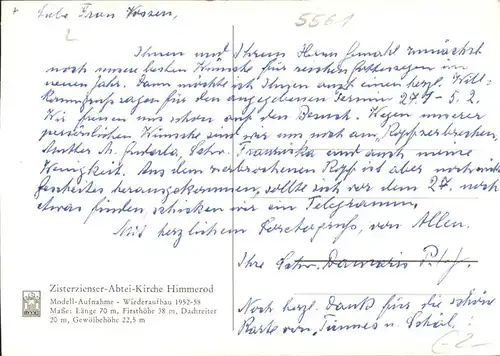 Liebe Frau Vossen,
5561
Ihnen und Ihrem Herrn Gemahl zunächst
noch unsere besten Wünsche für reichen Gottessegen im
neuen Jahr. Dann möchte ich Ihnen auch einen herzl. Will-
kommgruß sagen für den angegebenen Termin 27.1 - 5.2.
Wir freuen uns schon auf den Besuch. Wegen unserer
persönlichen Wünsche sind wir uns noch am Kopfzerbrechen,
Mutter M. Schw. Franziska und auch meine
Wenigkeit. Aus dem zerbrochenen Kopf ist aber noch nichts
herausgekommen, sollte sich vor dem 27. noch
etwas finden, schicken wir ein Telegramm.
Mit herzlichem von Allen.
Ihre Schw. Damaris
Noch herzl. Dank für die schöne
Karte von "Tünnes u. Schäl"!
Zisterzienser-Abtei-Kirche Himmerod
Modell-Aufnahme - Wiederaufbau 1952-58
Maße: Länge 70 m, Firsthöhe 38 m, Dachreiter
20 m, Gewölbehöhe 22,5 m
€2-